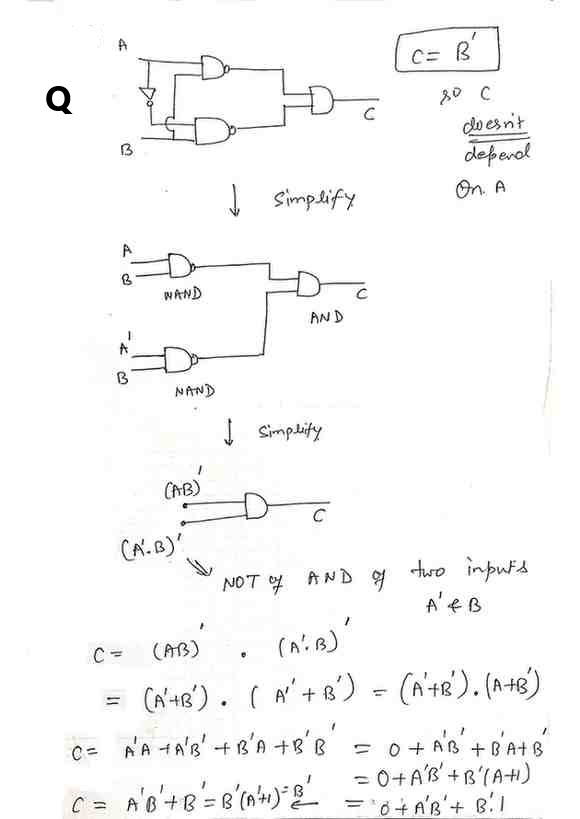 A
C = B'
Q
so C
C
doesn't
depend
B
On A
↓ Simplify
A
B
NAND
C
AND
A'
B
NAND
↓ Simplify
(AB)'
C
(A'.B)'
NOT of AND of two inputs
A' & B
C = (AB)' . (A'.B)'
= (A'+B') . (A''+B') = (A'+B').(A+B')
C = A'A + A'B' + B'A + B'B' = 0 + A'B' + B'A + B'
= 0 + A'B' + B'(A+1)
C = A'B' + B' = B'(A'+1) = B' ← = 0 + A'B' + B'.1